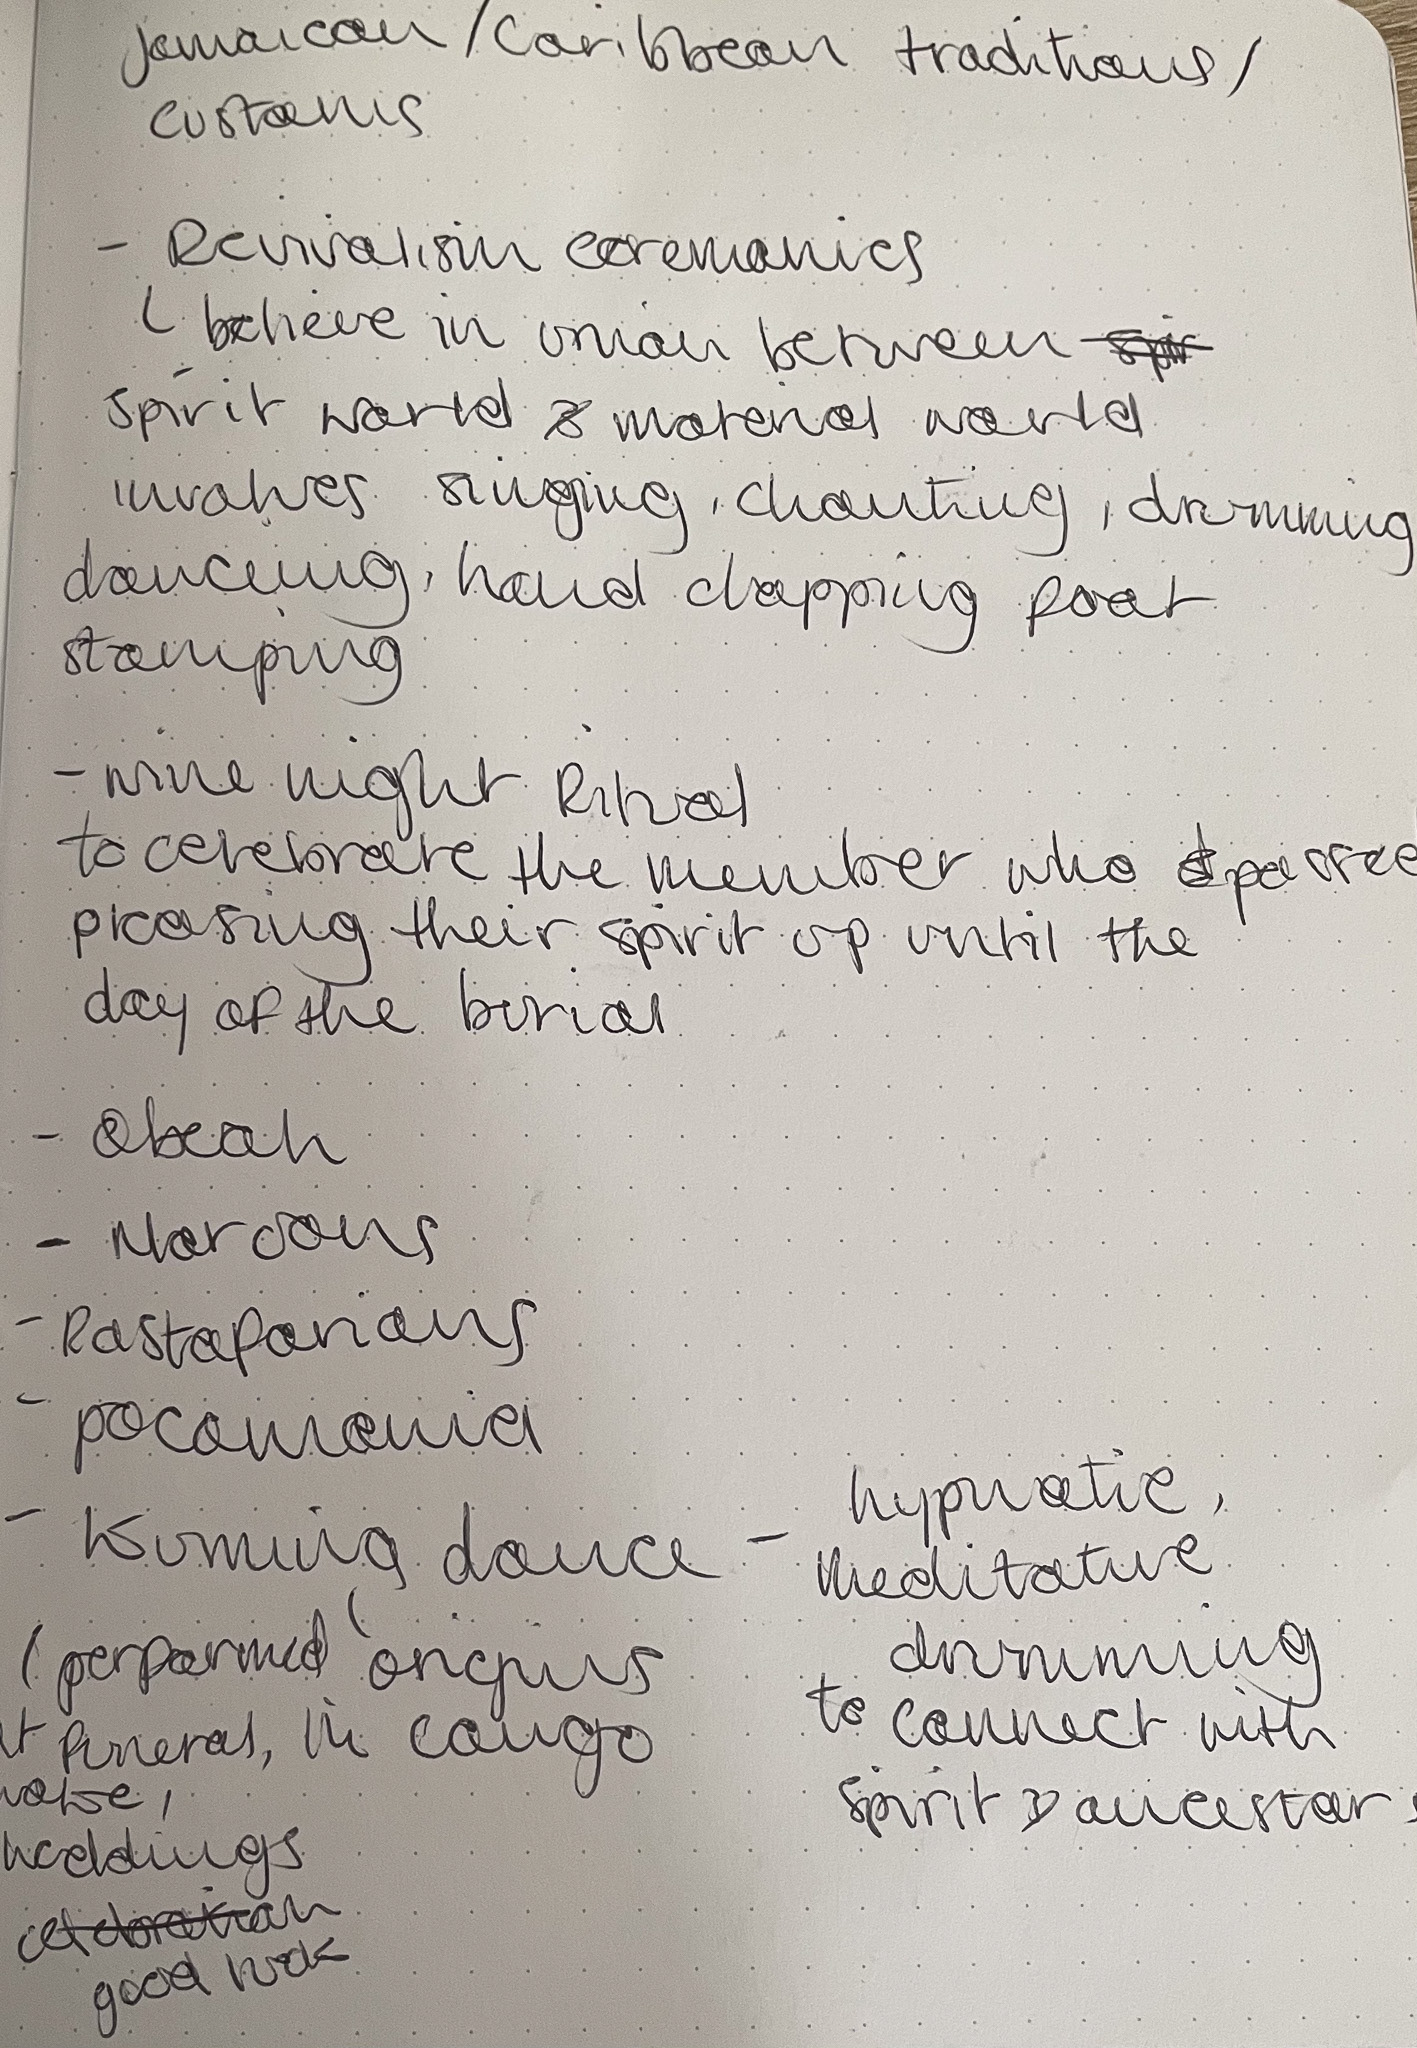 Jamaican/Caribbean traditions/
customs
- Revivalism ceremonies
believe in union between spir
spirit world & material world
involves singing, chanting, drumming
dancing, hand clapping foot
stamping
- nine night Ritual
to celebrate the member who passed
pleasing their spirit up until the
day of the burial
- Obeah
- Maroons
- Rastafarians
- pocomania
- Kumina dance - hypnotic,
meditative
drumming
to connect with
spirit & ancestors
(performed
at funeral,
wake,
weddings
celebration
good luck
origins
in congo